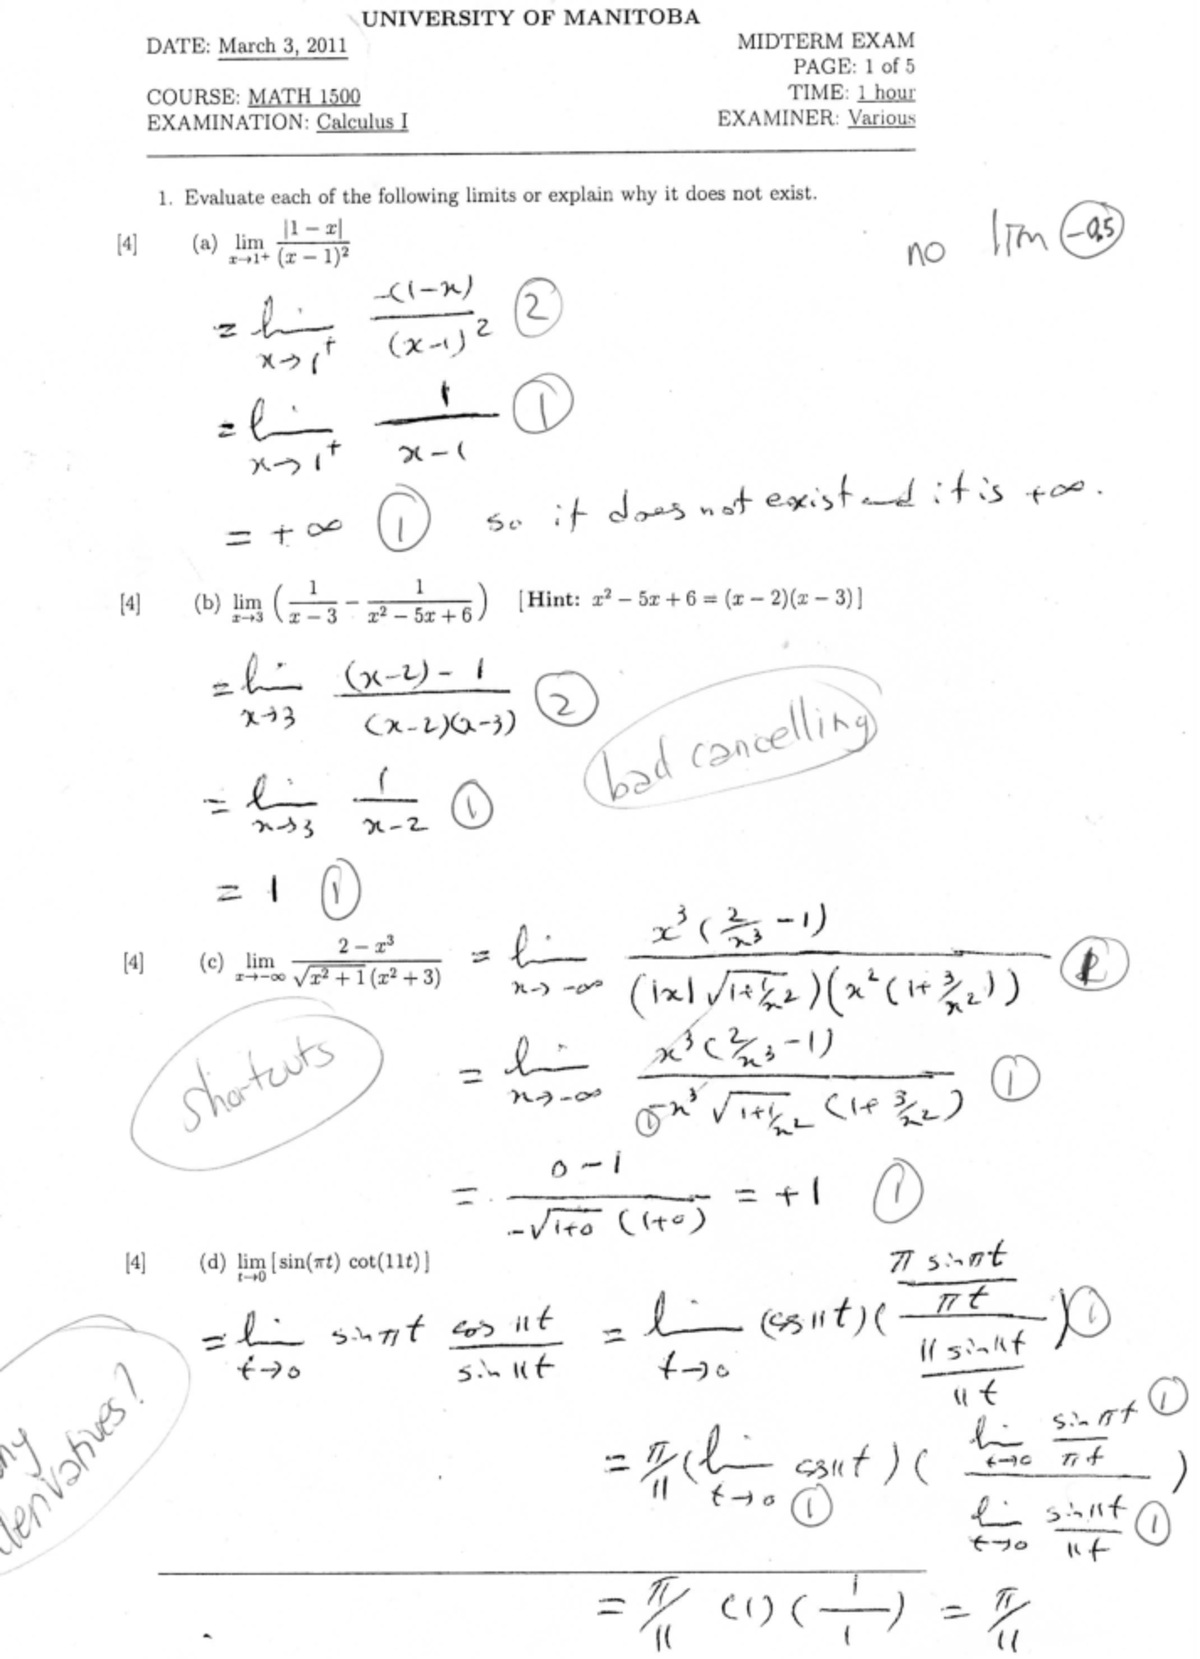 UNIVERSITY OF MANITOBA
DATE: March 3, 2011
MIDTERM EXAM
PAGE: 1 of 5
COURSE: MATH 1500
TIME: 1 hour
EXAMINATION: Calculus I
EXAMINER: Various
1. Evaluate each of the following limits or explain why it does not exist.
[4] (a) lim x→1+ |1 − x| / (x − 1)²
no lim −0.5
= lim x→1+ −(1−x) / (x−1)² 2
= lim x→1+ 1 / x−1 1
= +∞ 1 so it does not exist and it is +∞.
[4] (b) lim x→3 ( 1 / x − 3 − 1 / x² − 5x + 6 ) [Hint: x² − 5x + 6 = (x − 2)(x − 3)]
= lim x→3 (x−2) − 1 / (x−2)(x−3) 2
bad cancelling
= lim x→3 1 / x−2 1
= 1 1
[4] (c) lim x→−∞ 2 − x³ / √x² + 1 (x² + 3) = lim x→−∞ x³ (2/x³ − 1) / (|x| √1+1/x²)(x² (1+ 3/x²))
shortcuts
= lim x→−∞ x³ (2/x³ − 1) / −x³ √1+1/x² (1+ 3/x²) 1
= 0 − 1 / −√1+0 (1+0) = +1 1
[4] (d) lim t→0 [sin(πt) cot(11t)]
= lim t→0 sin πt cos 11t / sin 11t = lim t→0 (cos 11t) ( π sin πt / πt / 11 sin 11t / 11t ) 1
derivatives?
= π/11 ( lim t→0 cos 11t ) 1 ( lim t→0 sin πt / πt 1 / lim t→0 sin 11t / 11t 1 )
= π/11 (1) ( 1 / 1 ) = π/11